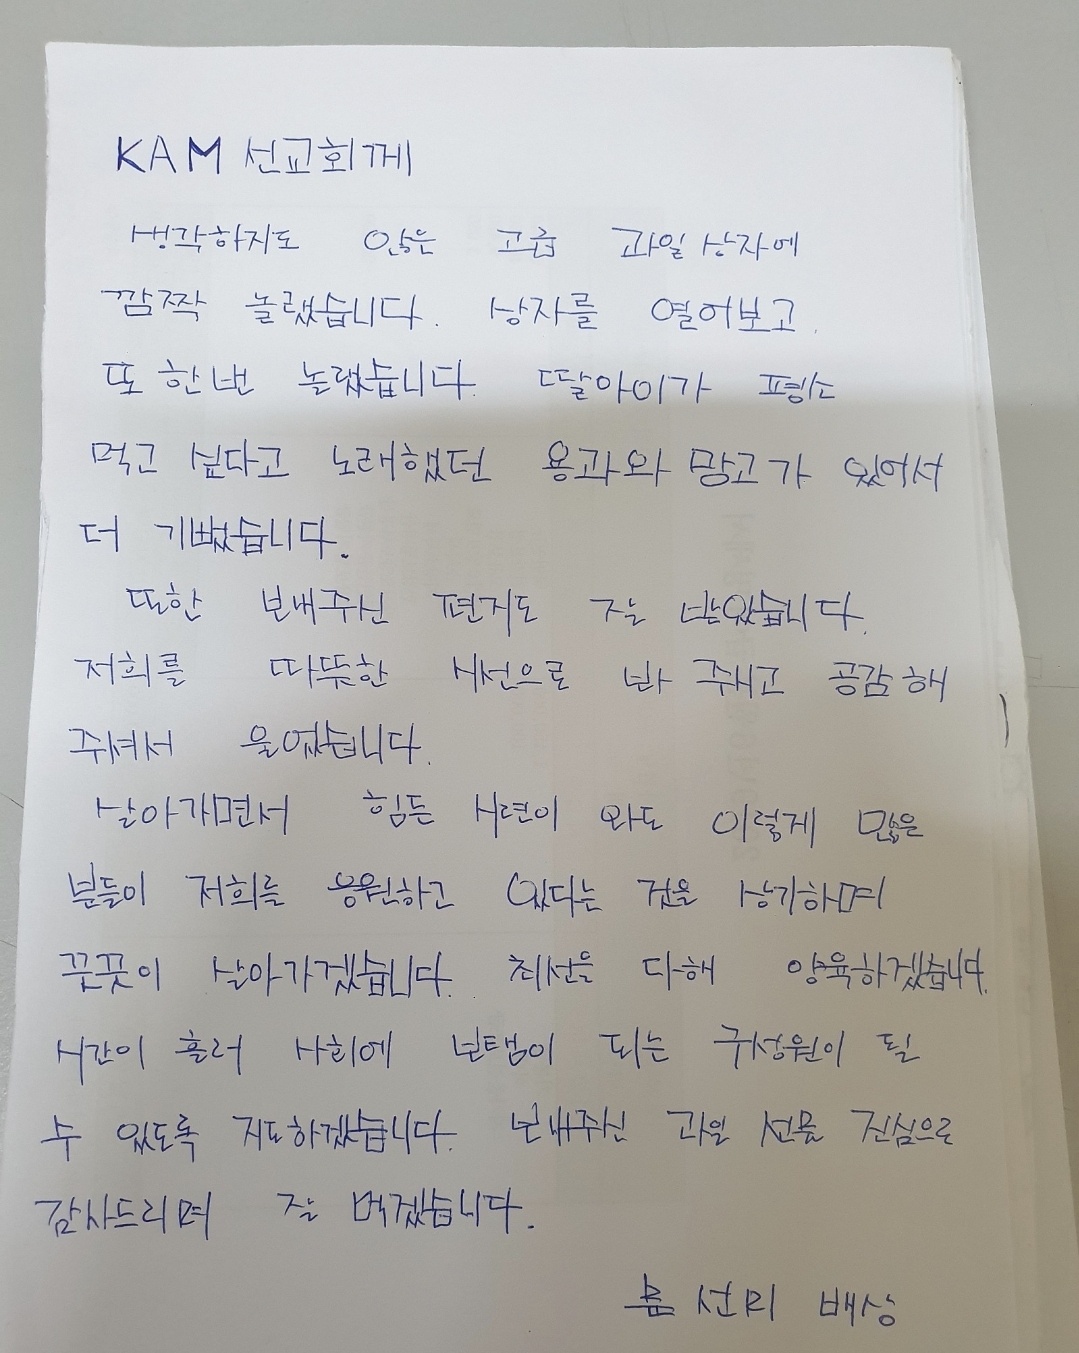 KAM 선교회께
생각하지도 않은 고급 과일상자에
깜짝 놀랬습니다. 상자를 열어보고
또 한번 놀랬습니다. 딸아이가 평소
먹고 싶다고 노래했던 용과와 망고가 있어서
더 기뻤습니다.
또한 보내주신 편지도 잘 받았습니다.
저희를 따뜻한 시선으로 봐 주시고 공감해
주셔서 울었습니다.
살아가면서 힘든 시련이 와도 이렇게 많은
분들이 저희를 응원하고 있다는 것을 상기하며
꿋꿋이 살아가겠습니다. 최선을 다해 양육하겠습니다.
시간이 흘러 사회에 보탬이 되는 구성원이 될
수 있도록 지도하겠습니다. 보내주신 과일 선물 진심으로
감사드리며 잘 먹겠습니다.
선미 배상